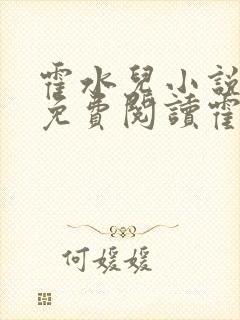 霍水兒小說
免費閱讀霍
何媛媛